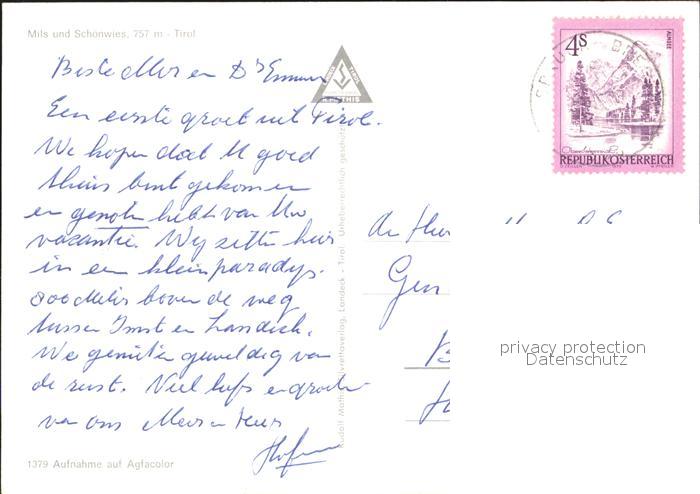 Mils und Schönwies, 757 m - Tirol
Beste Mer en Dr
Een eerste groet uit Tirol.
We hopen dat U goed
thuis bent gekomen
en genoten hebt van Uw
vacantie. Wy zitten hier
in een klein paradys.
800 Meter boven de weg
tussen Imst en Landeck.
We genieten geweldig van
de rust. Veel liefs en groeten
van ons
1379 Aufnahme auf Agfacolor
Rudolf Mathis, Landeck - Tirol. Urheberrechtlich geschützt
MATHIS
4S
ALMSEE
REPUBLIK ÖSTERREICH
privacy protection
Datenschutz